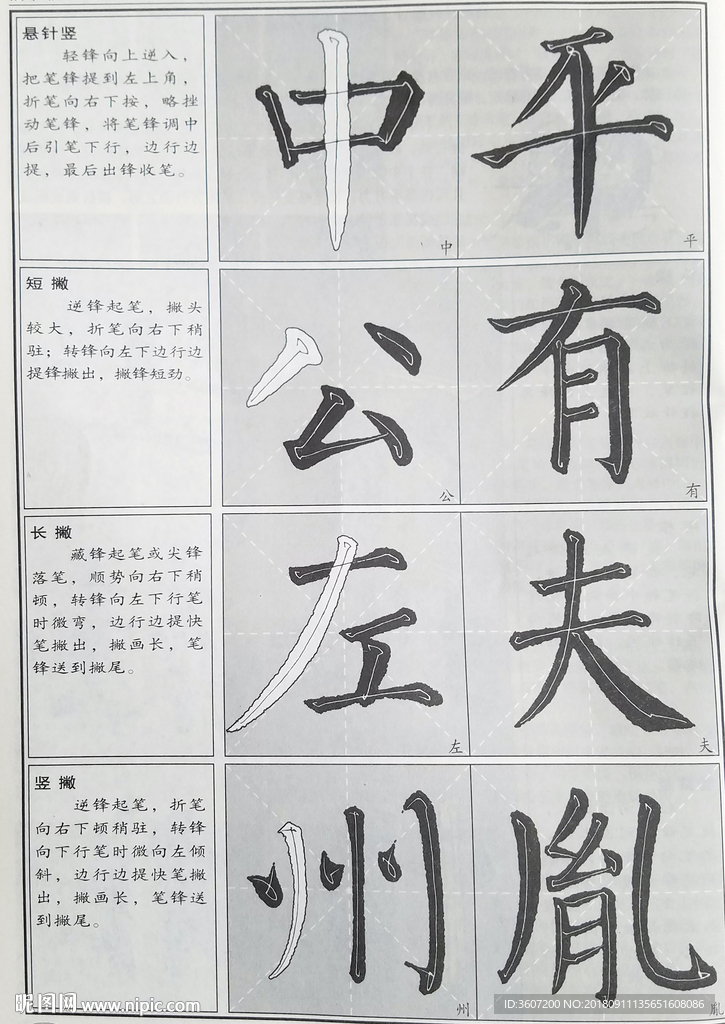 悬针竖
轻锋向上逆入，
把笔锋提到左上角，
折笔向右下按，略挫
动笔锋，将笔锋调中
后引笔下行，边行边
提，最后出锋收笔。
中
平
中
平
短撇
逆锋起笔，撇头
较大，折笔向右下稍
驻；转锋向左下边行边
提锋撇出，撇锋短劲。
公
有
公
有
长撇
藏锋起笔或尖锋
落笔，顺势向右下稍
顿，转锋向左下行笔
时微弯，边行边提快
笔撇出，撇画长，笔
锋送到撇尾。
左
夫
左
夫
竖撇
逆锋起笔，折笔
向右下顿稍驻，转锋
向下行笔时微向左倾
斜，边行边提快笔撇
出，撇画长，笔锋送
到撇尾。
州
胤
州
胤
昵图网 www.nipic.com
ID:3607200 NO:20180911135651608086